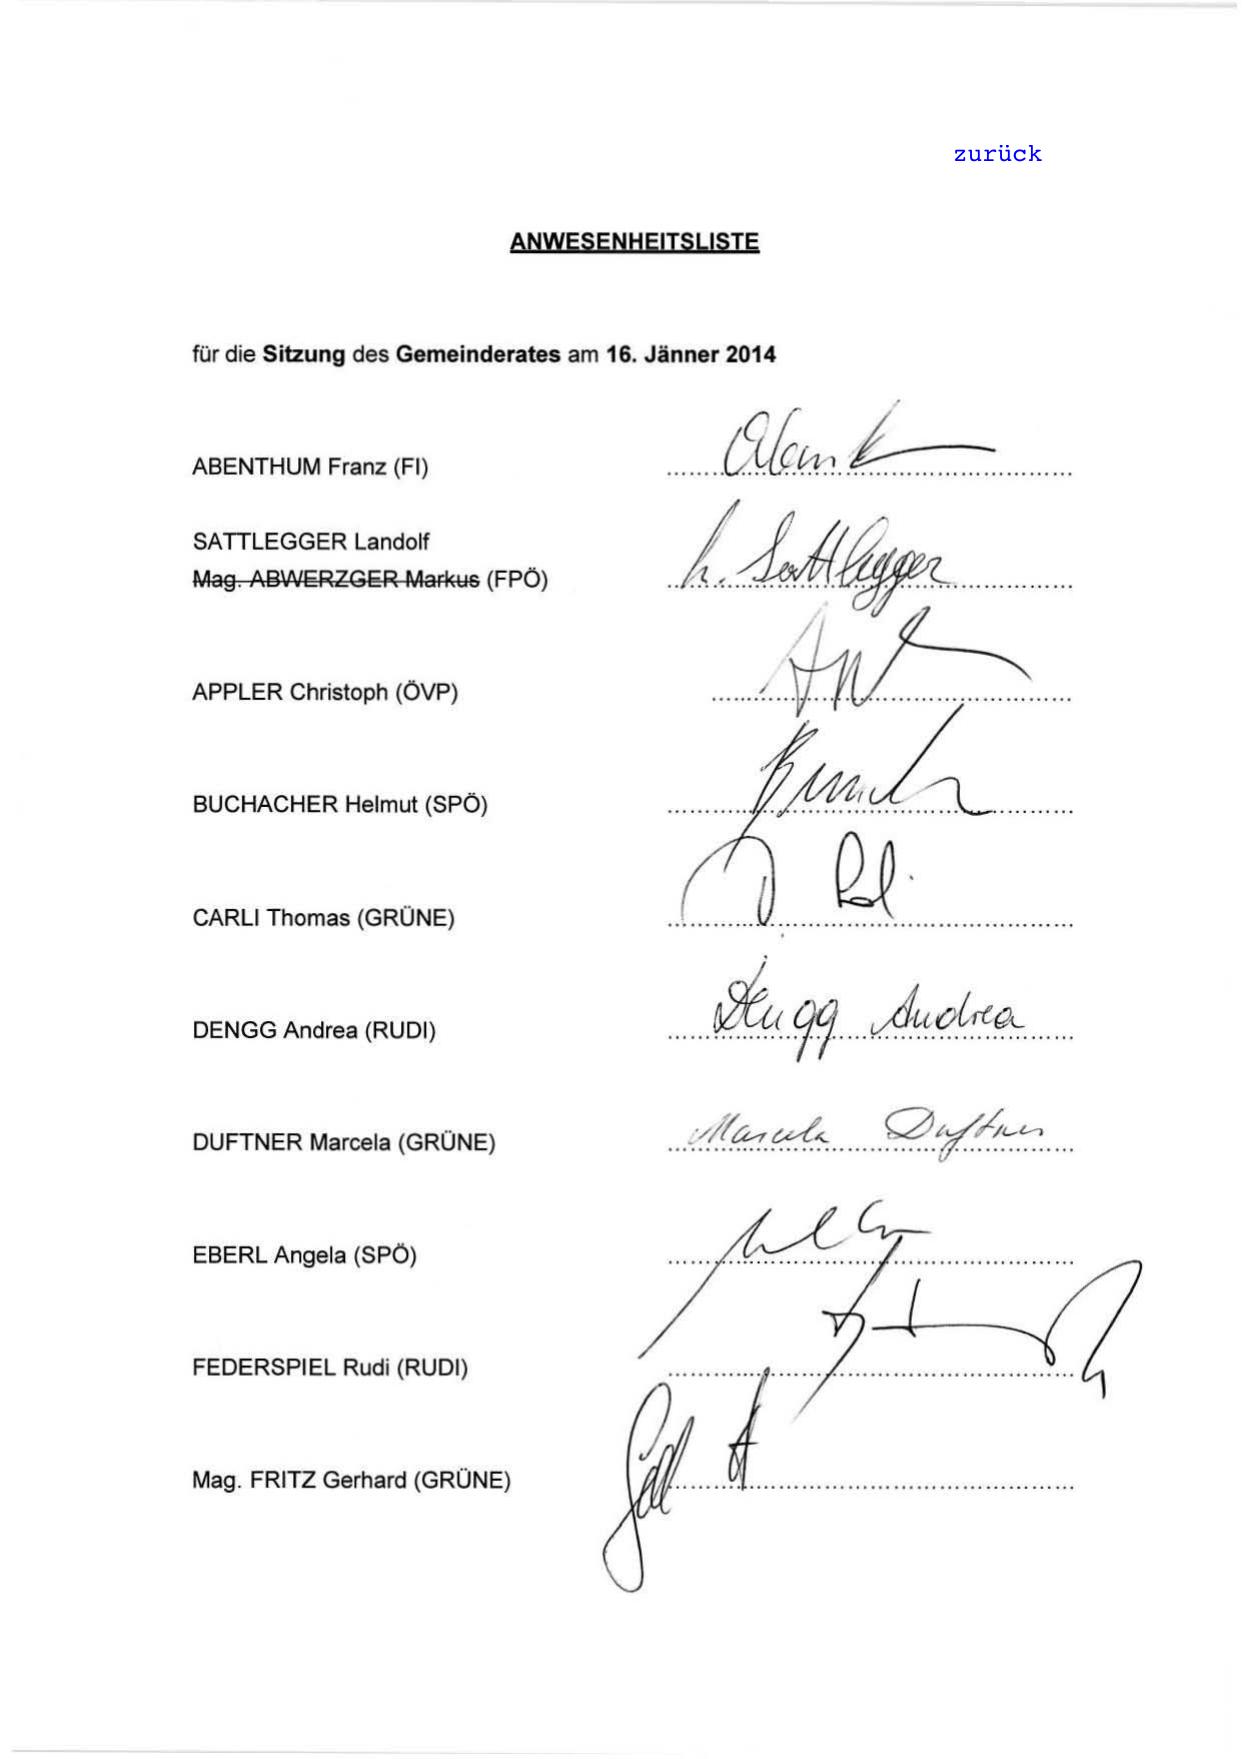 zurück
ANWESENHEITSLISTE
für die Sitzung des Gemeinderates am 16. Jänner 2014
ABENTHUM Franz (FI)
SATTLEGGER Landolf
Mag. ABWERZGER Markus (FPÖ) L. Sattlegger
APPLER Christoph (ÖVP)
BUCHACHER Helmut (SPÖ)
CARLI Thomas (GRÜNE)
DENGG Andrea (RUDI) Dengg Andrea
DUFTNER Marcela (GRÜNE) Marcela Duftner
EBERL Angela (SPÖ)
FEDERSPIEL Rudi (RUDI)
Mag. FRITZ Gerhard (GRÜNE)